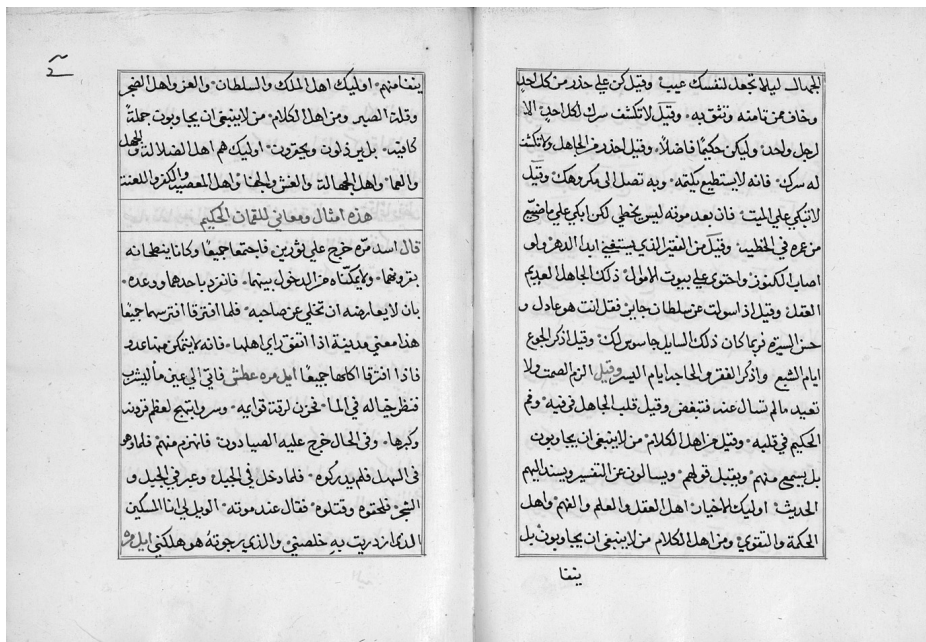 الجهال ليلا تجعل لنفسك عيب وقيل كن علي حذر من كل احد
وخاف ممن تامنه وتثق به وقيل لا تكشف سرك لكل احد الا
لرجل واحد وليكن حكيمًا فاضلاً وقيل احذر من الجاهل ولا تكشف
له سرك فانه لا يستطيع يكتمه وبه تصل الى مكروهك وقيل
لا تبكي علي الميت فان بعد موته ليس يخطي لكن ابكي علي ما ضيع
من عمره في الخطيه وقيل من الفقير الذي ليستغني ابدا الدهر ولو
اصاب الكنوز واحتوى علي بيوت الاموال ذلك الجاهل العديم
العقل وقيل اذا سولت عن سلطان جاير فقل انت هو عادل و
حسن السيره فربما كان ذلك السايل جاسوس لك وقيل اذكر الجوع
ايام الشبع واذكر الفقر والحاجه ايام اليسر وقيل الزم الصمت ولا
تعيد ما لم تسال عنه فتبغض وقيل قلب الجاهل في فيه وفم
الحكيم في قلبه وقيل من اهل الكلام من لا ينبغى ان يجاوبون
بل يسمع منهم ويقبل قولهم ويسالون عن التفسير ويسند اليهم
الحديث اوليك الاخيار اهل العقل والعلم والفهم واهل
الحكمة والتقوي ومن اهل الكلام من لا ينبغى ان يجاوبون بل
ينفا
ينفا منهم اوليك اهل الملك والسلطان والعز واهل الضجر
وقلة الصبر ومن اهل الكلام من لا ينبغى ان يجاوبون جملة
كافيه بل يرذلون ويحقرون اوليك هم اهل الضلالة والجهل
والعما واهل الجهالة والغش والجفا واهل المعصيه والكفر واللعنة
هذه امثال ومعاني للقمان الحكيم
قال اسد مرّه خرج علي ثورين فاجتمعا جميعًا وكانا ينطحانه
بقرونهما ولا يمكّناه من الدخول بينهما فانفرد باحدهما ووعده
بان لا يعارضه ان تخلي عن صاحبه فلما افترقا افترسهما جميعًا
هذا معني مدينة اذا اتفق راي اهلها فانه لا يتمكن منها عدو
فاذا افترقا اكلها جميعًا ايل مره عطش فاتي الي عين ما ليشرب
فنظر خياله في الما فحزن لرقة قوايمه وسر وابتهج لعظم قرونه
وكبرها وفى الحال خرج عليه الصيادون فانهزم منهم فلما هو
فى السهل فلم يدركوه فلما دخل في الجبل وعبر في الجبل و
الشجر فلحقوه وقتلوه فقال عند موته الويل لي انا المسكين
الذي ازدريت به خلصني والذي رجوته هو هلكني ايل مره